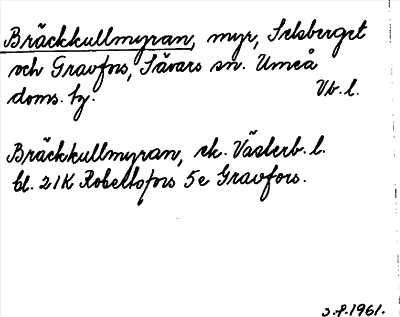 Bräckkullmyran, myr, Selsberget
och Gravfors, Sävars sn. Umeå
doms. tg. Vb. l.
Bräckkullmyran, ek. Västerb. l.
bl. 21K Robertsfors 5e Gravfors.
3.8.1961.